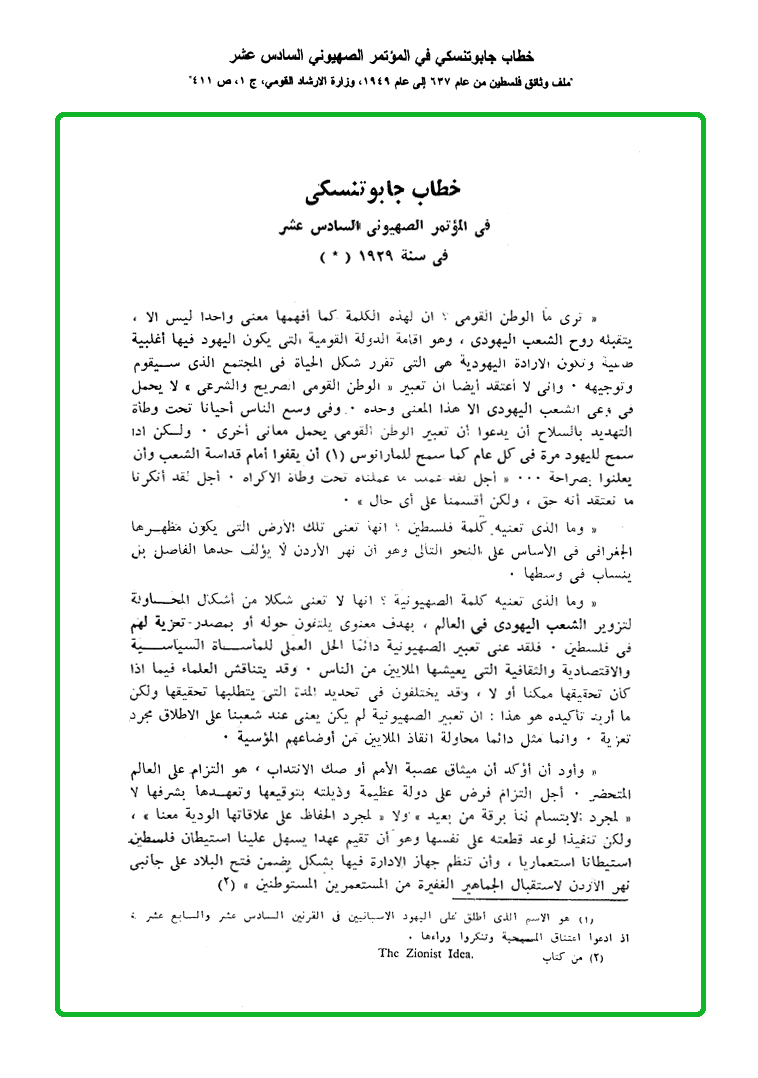 خطاب جابوتنسكي في المؤتمر الصهيوني السادس عشر
"ملف وثائق فلسطين من عام ٦٣٧ إلى عام ١٩٤٩، وزارة الارشاد القومي، ج ١، ص ٤١١"
خطاب جابوتنسكى
فى المؤتمر الصهيونى السادس عشر
فى سنة ١٩٢٩ ( * )
« ترى ما الوطن القومى ؟ ان لهذه الكلمة كما أفهمها معنى واحدا ليس الا ،
يتقبله روح الشعب اليهودى ، وهو اقامة الدولة القومية التى يكون اليهود فيها أغلبية
وتكون الارادة اليهودية هى التى تقرر شكل الحياة فى المجتمع الذى سـيقوم
وتوجيهه ٠ وانى لا أعتقد أيضا ان تعبير « الوطن القومى الصريح والشرعى » لا يحمل
فى وعى الشعب اليهودى الا هذا المعنى وحده ٠ وفى وسع الناس أحيانا تحت وطأة
التهديد بالسلاح أن يدعوا أن تعبير الوطن القومى يحمل معانى أخرى ٠ ولـكن اذا
سمح لليهود مرة فى كل عام كما سمح للمارانوس (١) أن يقفوا أمام قداسة الشعب وأن
يعلنوا بصراحة ٠٠٠ « أجل لقد عملنا ما عملناه تحت وطأة الاكراه ٠ أجل لقد أنكرنا
ما نعتقد أنه حق ، ولكن أقسمنا على أى حال » ٠
« وما الذى تعنيه كلمة فلسطين ؟ انها تعنى تلك الأرض التى يكون مظهـرها
الجغرافى فى الأساس على النحو التالى وهو أن نهر الأردن لا يؤلف حدها الفاصل بل
ينساب فى وسطها ٠
« وما الذى تعنيه كلمة الصهيونية ؟ انها لا تعنى شكلا من أشكال المحـاولة
لتزوير الشعب اليهودى فى العالم ، بهدف معنوى يلتفون حوله أو بمصدر تعزية لهم
فى فلسطين ٠ فلقد عنى تعبير الصهيونية دائما الحل العملى للمأسـاة السياسـية
والاقتصادية والثقافية التى يعيشها الملايين من الناس ٠ وقد يتناقش العلماء فيما اذا
كان تحقيقها ممكنا أو لا ، وقد يختلفون فى تحديد المدة التى يتطلبها تحقيقها ولكن
ما أريد تأكيده هو هذا : ان تعبير الصهيونية لم يكن يعنى عند شعبنا على الاطلاق مجرد
تعزية ٠ وانما مثل دائما محاولة انقاذ الملايين من أوضاعهم المؤسية ٠
« وأود أن أؤكد أن ميثاق عصبة الأمم أو صك الانتداب ، هو التزام على العالم
المتحضر ٠ أجل التزام فرض على دولة عظيمة وذيلته بتوقيعها وتعهـدها بشرفها لا
« لمجرد الابتسام لنا برقة من بعيد » ولا « لمجرد الحفاظ على علاقاتها الودية معنا » ،
ولكن تنفيذا لوعد قطعته على نفسها وهو أن تقيم عهدا يسهل علينا استيطان فلسطين
استيطانا استعماريا ، وأن تنظم جهاز الادارة فيها بشكل يضمن فتح البلاد على جانبى
نهر الأردن لاستقبال الجماهير الغفيرة من المستعمرين المستوطنين » (٢)
(١) هو الاسم الذى أطلق على اليهود الاسبانيين فى القرنين السادس عشر والسابع عشر ،
اذ ادعوا اعتناق المسيحية وتنكروا وراءها ٠
(٢) من كتاب The Zionist Idea.